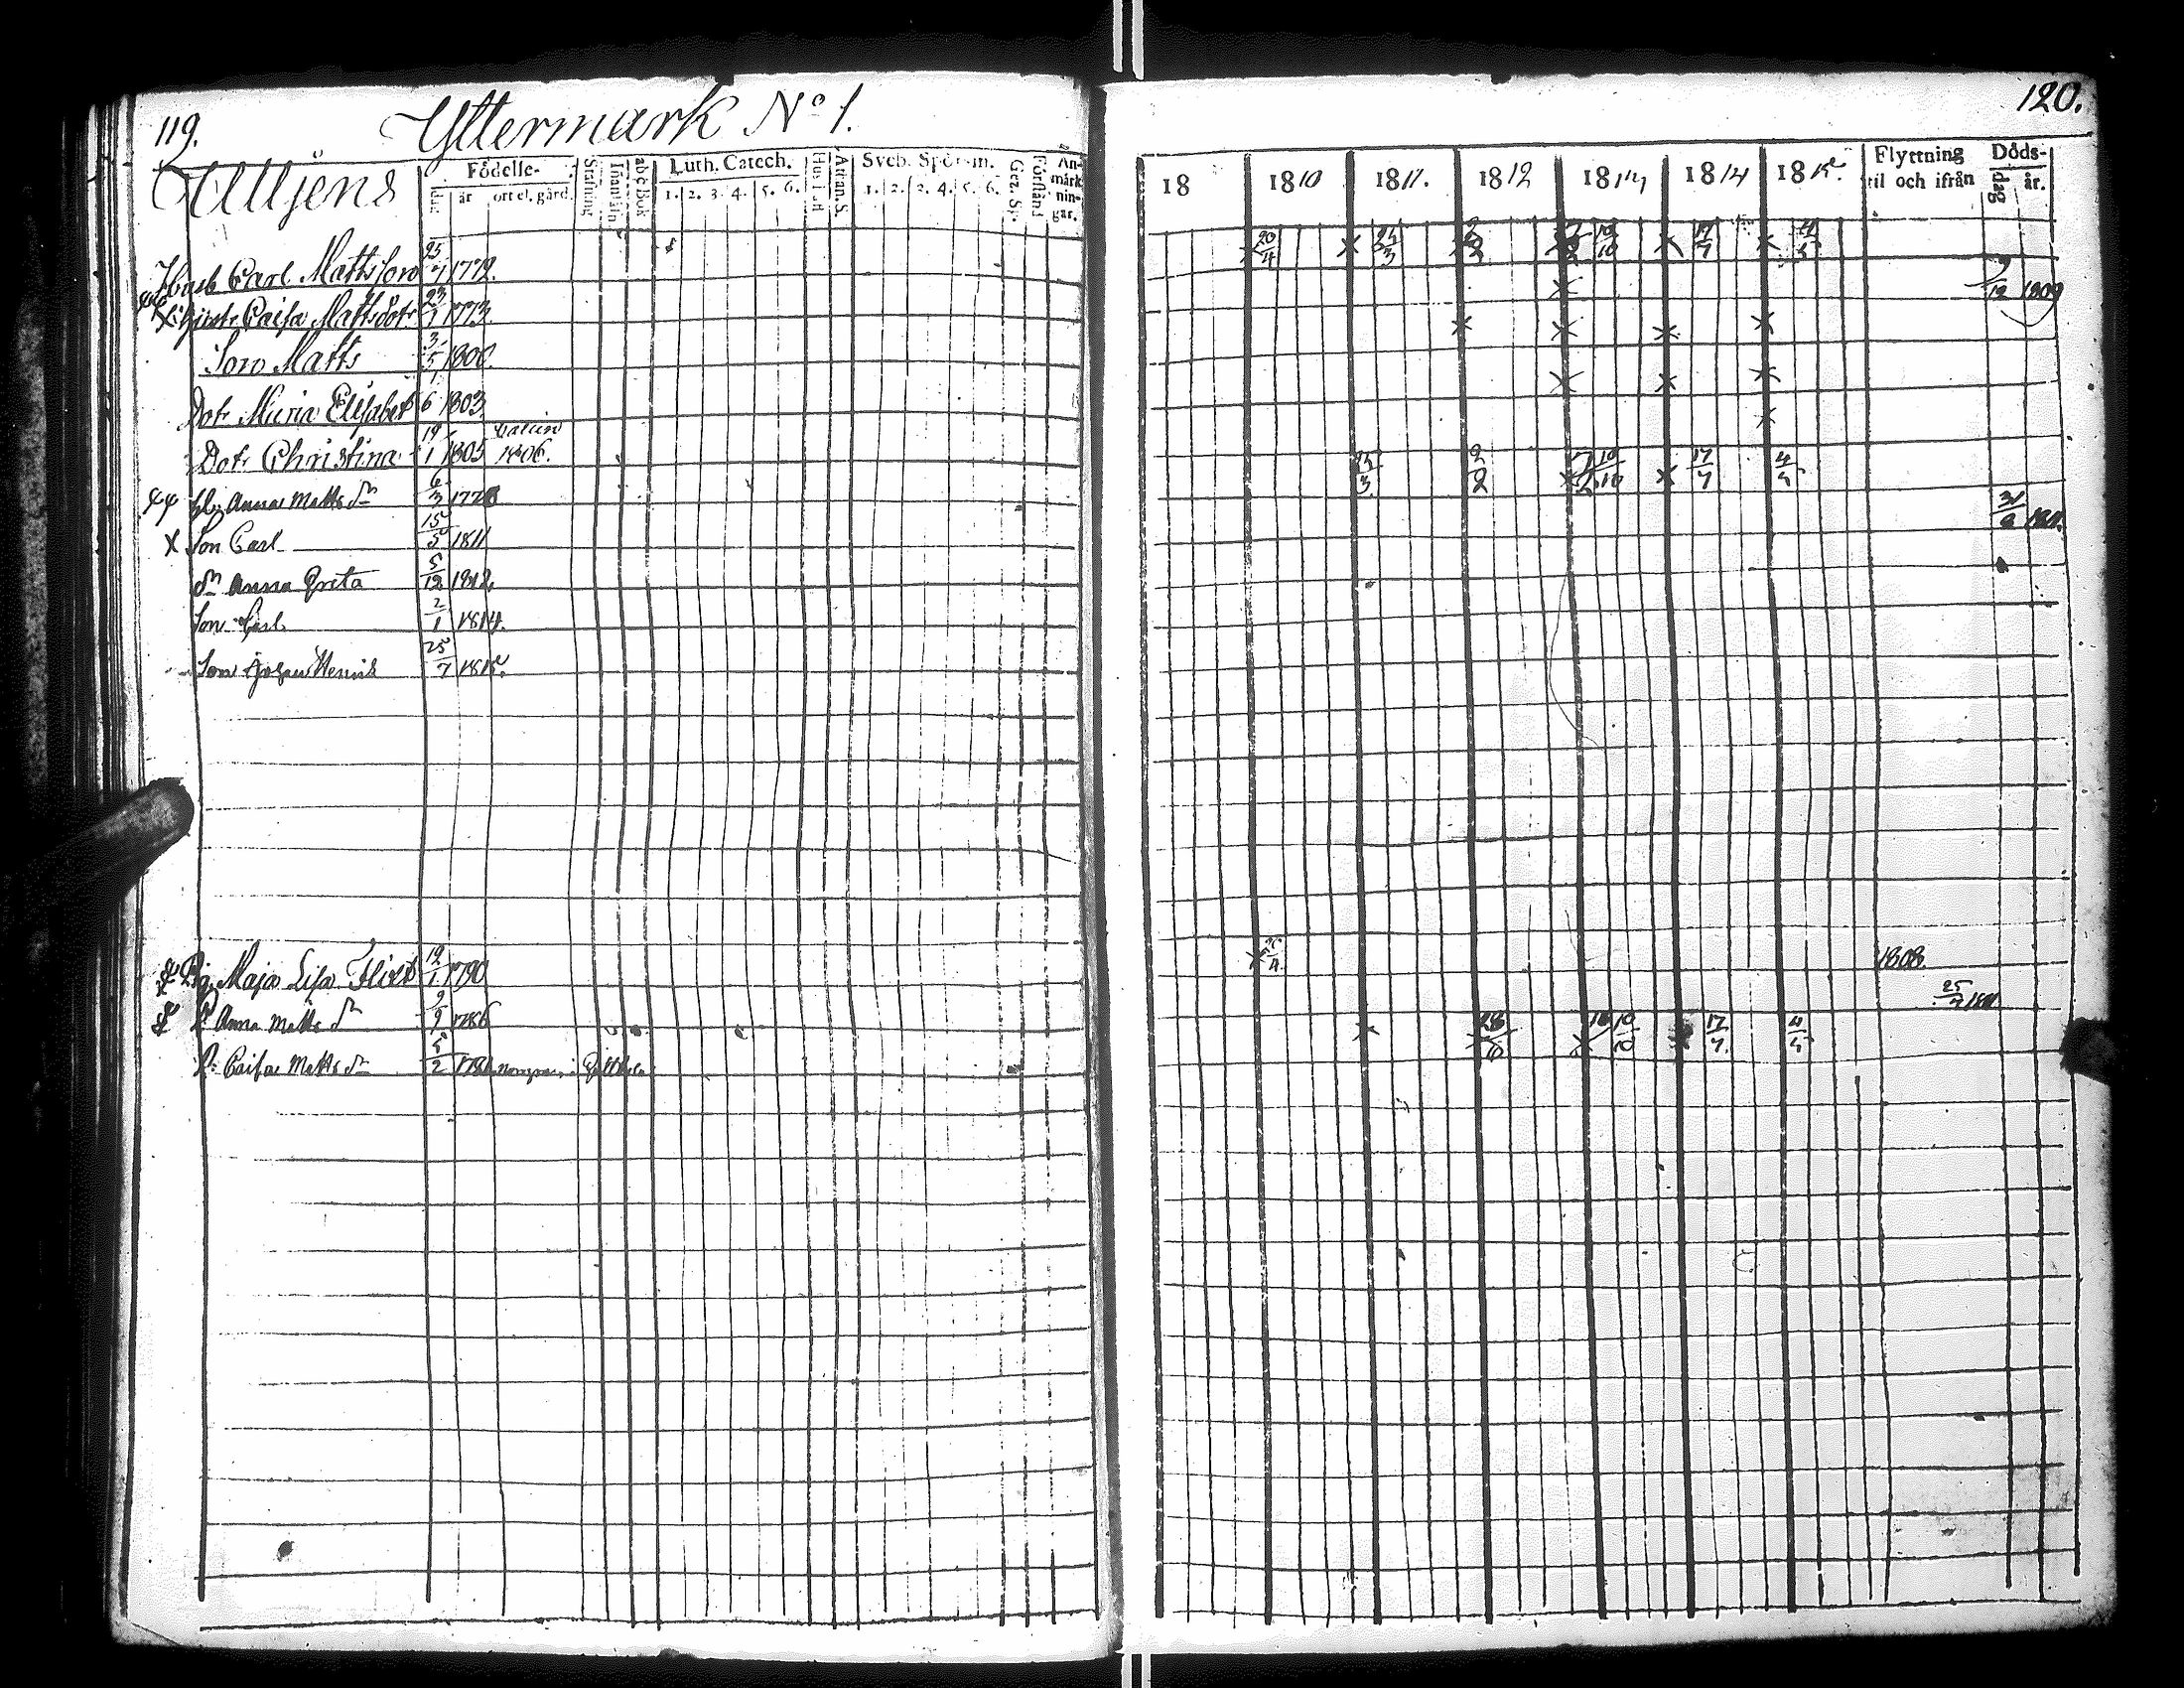 119.
Yttermark No 1.
120.
Födelse-
dag
år
ort el. gård.
abc Bok
Luth. Catech.
1. 2. 3. 4. 5. 6.
Sveb. Spörsm.
1. 2. 3. 4. 5. 6.
Förstånd
Anmärkningar.
18 1810 1811. 1812 1813 1814 1815
Flyttning
til och ifrån
Döds-
dag
år.
Husb Carl Mattsson 25/7 1772.
20/4 24/3 10/10 17/7 4/5
Hustr Caisa Mattsdotr 23/7 1773.
12 1809
Son Matts 3/5 1800.
Dotr Maria Elisabet 1/6 1803
Dotr Christina 19/1 1805 vaccin 1806.
h. Anna Matts dr 6/3 177
24/3 2/2 10/10 17/7 4/5
X Son Carl 15/5 1811
31/8 1811.
dr Anna Greta 5/12 1812
Son Carl 2/1 1814.
Son Johan Henrik 25/7 1815.
Pig. Maja Lisa 12/1 1790
1808.
P. Anna Matts dr 9/9 1786
25/7 1811
P. Caisa Matts dr 5/2 178
28/10 10/10 17/7 4/5